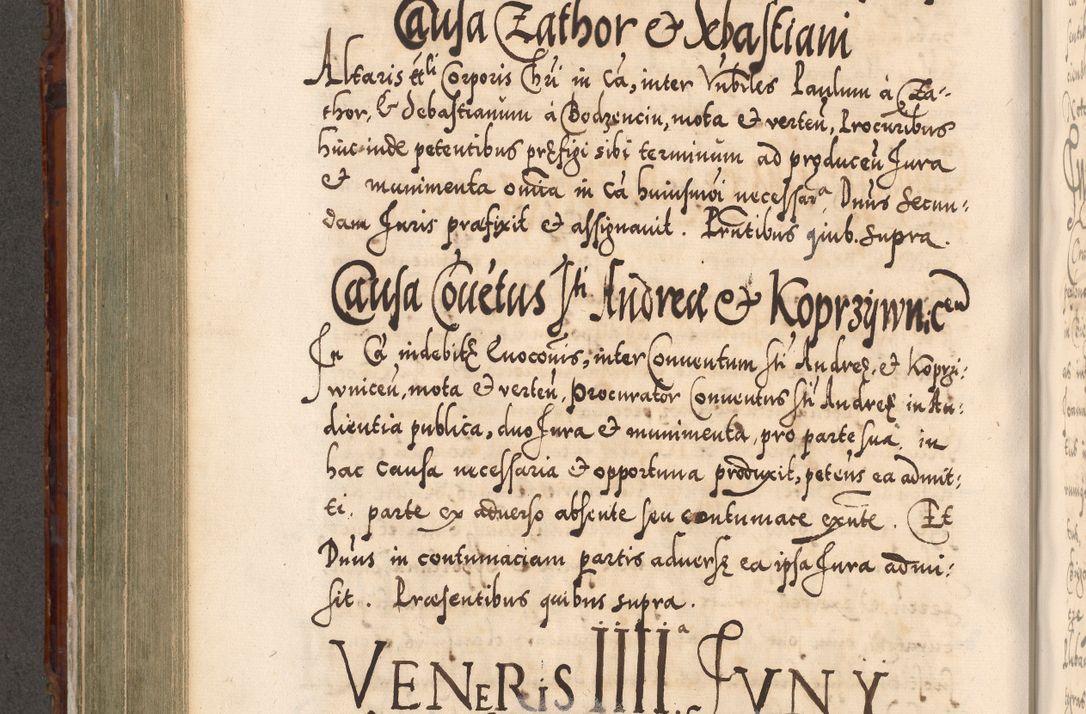 Causa Zathor & Sebastiani
Altaris ttli Corporis Chri in Ca, inter Vnbiles Paulum à Za-
thor, & Sebastianum à Bodzencin, mota & verten, Procuribus
hinc inde petentibus præfigi sibi terminum ad producen Iura
& munimenta omnia in Ca huiusmoi necessara Dnus Secun-
dam Iuris præfixit & assignauit. Prntibus quib. supra.
Causa Couetus Sti Andreæ & Koprzywnicen
In Ca indebitæ Euoconis, inter Conuentum Sti Andreæ, & Koprzi-
wnicen, mota & verten, Procurator Conuentus Sti Andreæ in Au-
dientia publica, duo Iura & munimenta, pro parte sua, in
hac causa necessaria & opportuna produxit, petens ea admit-
ti, parte ex aduerso absente seu contumace exnte. Et
Dnus in contumaciam partis aduersæ ea ipsa Iura admi-
sit. Præsentibus quibus supra.
VENERIS IIIIa IVNY